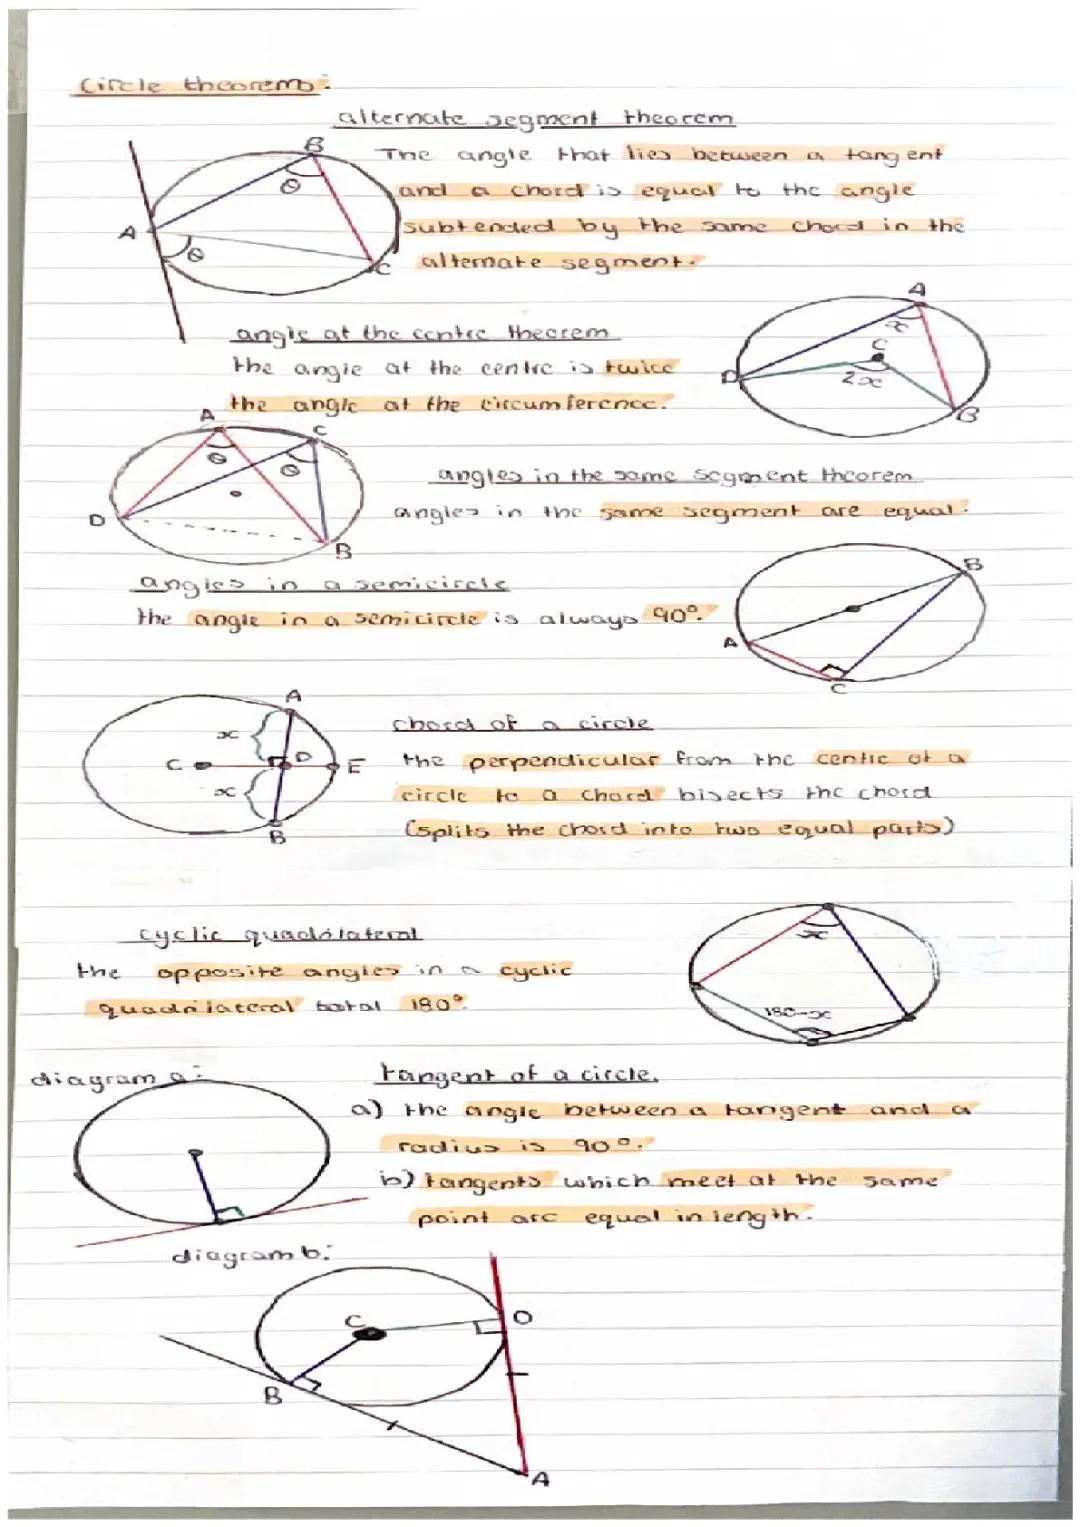 Circle theorems:
alternate segment theorem
The angle that lies between a tangent
and a chord is equal to the angle
subtended by the same chord in the
alternate segment.
B
θ
A
θ
C
angle at the centre theorem
the angle at the centre is twice
the angle at the circumference.
A
x
C
D
2x
B
A
C
θ
θ
D
B
angles in the same segment theorem
angles in the same segment are equal.
angles in a semicircle
the angle in a semicircle is always 90°.
B
A
C
A
x
C
D
E
x
B
chord of a circle
the perpendicular from the centre of a
circle to a chord bisects the chord
(splits the chord into two equal parts)
cyclic quadrilateral
the opposite angles in a cyclic
quadrilateral total 180°.
x
180-x
diagram a:
tangent of a circle.
a) the angle between a tangent and a
radius is 90°.
b) tangents which meet at the same
point are equal in length.
diagram b:
C
D
B
A